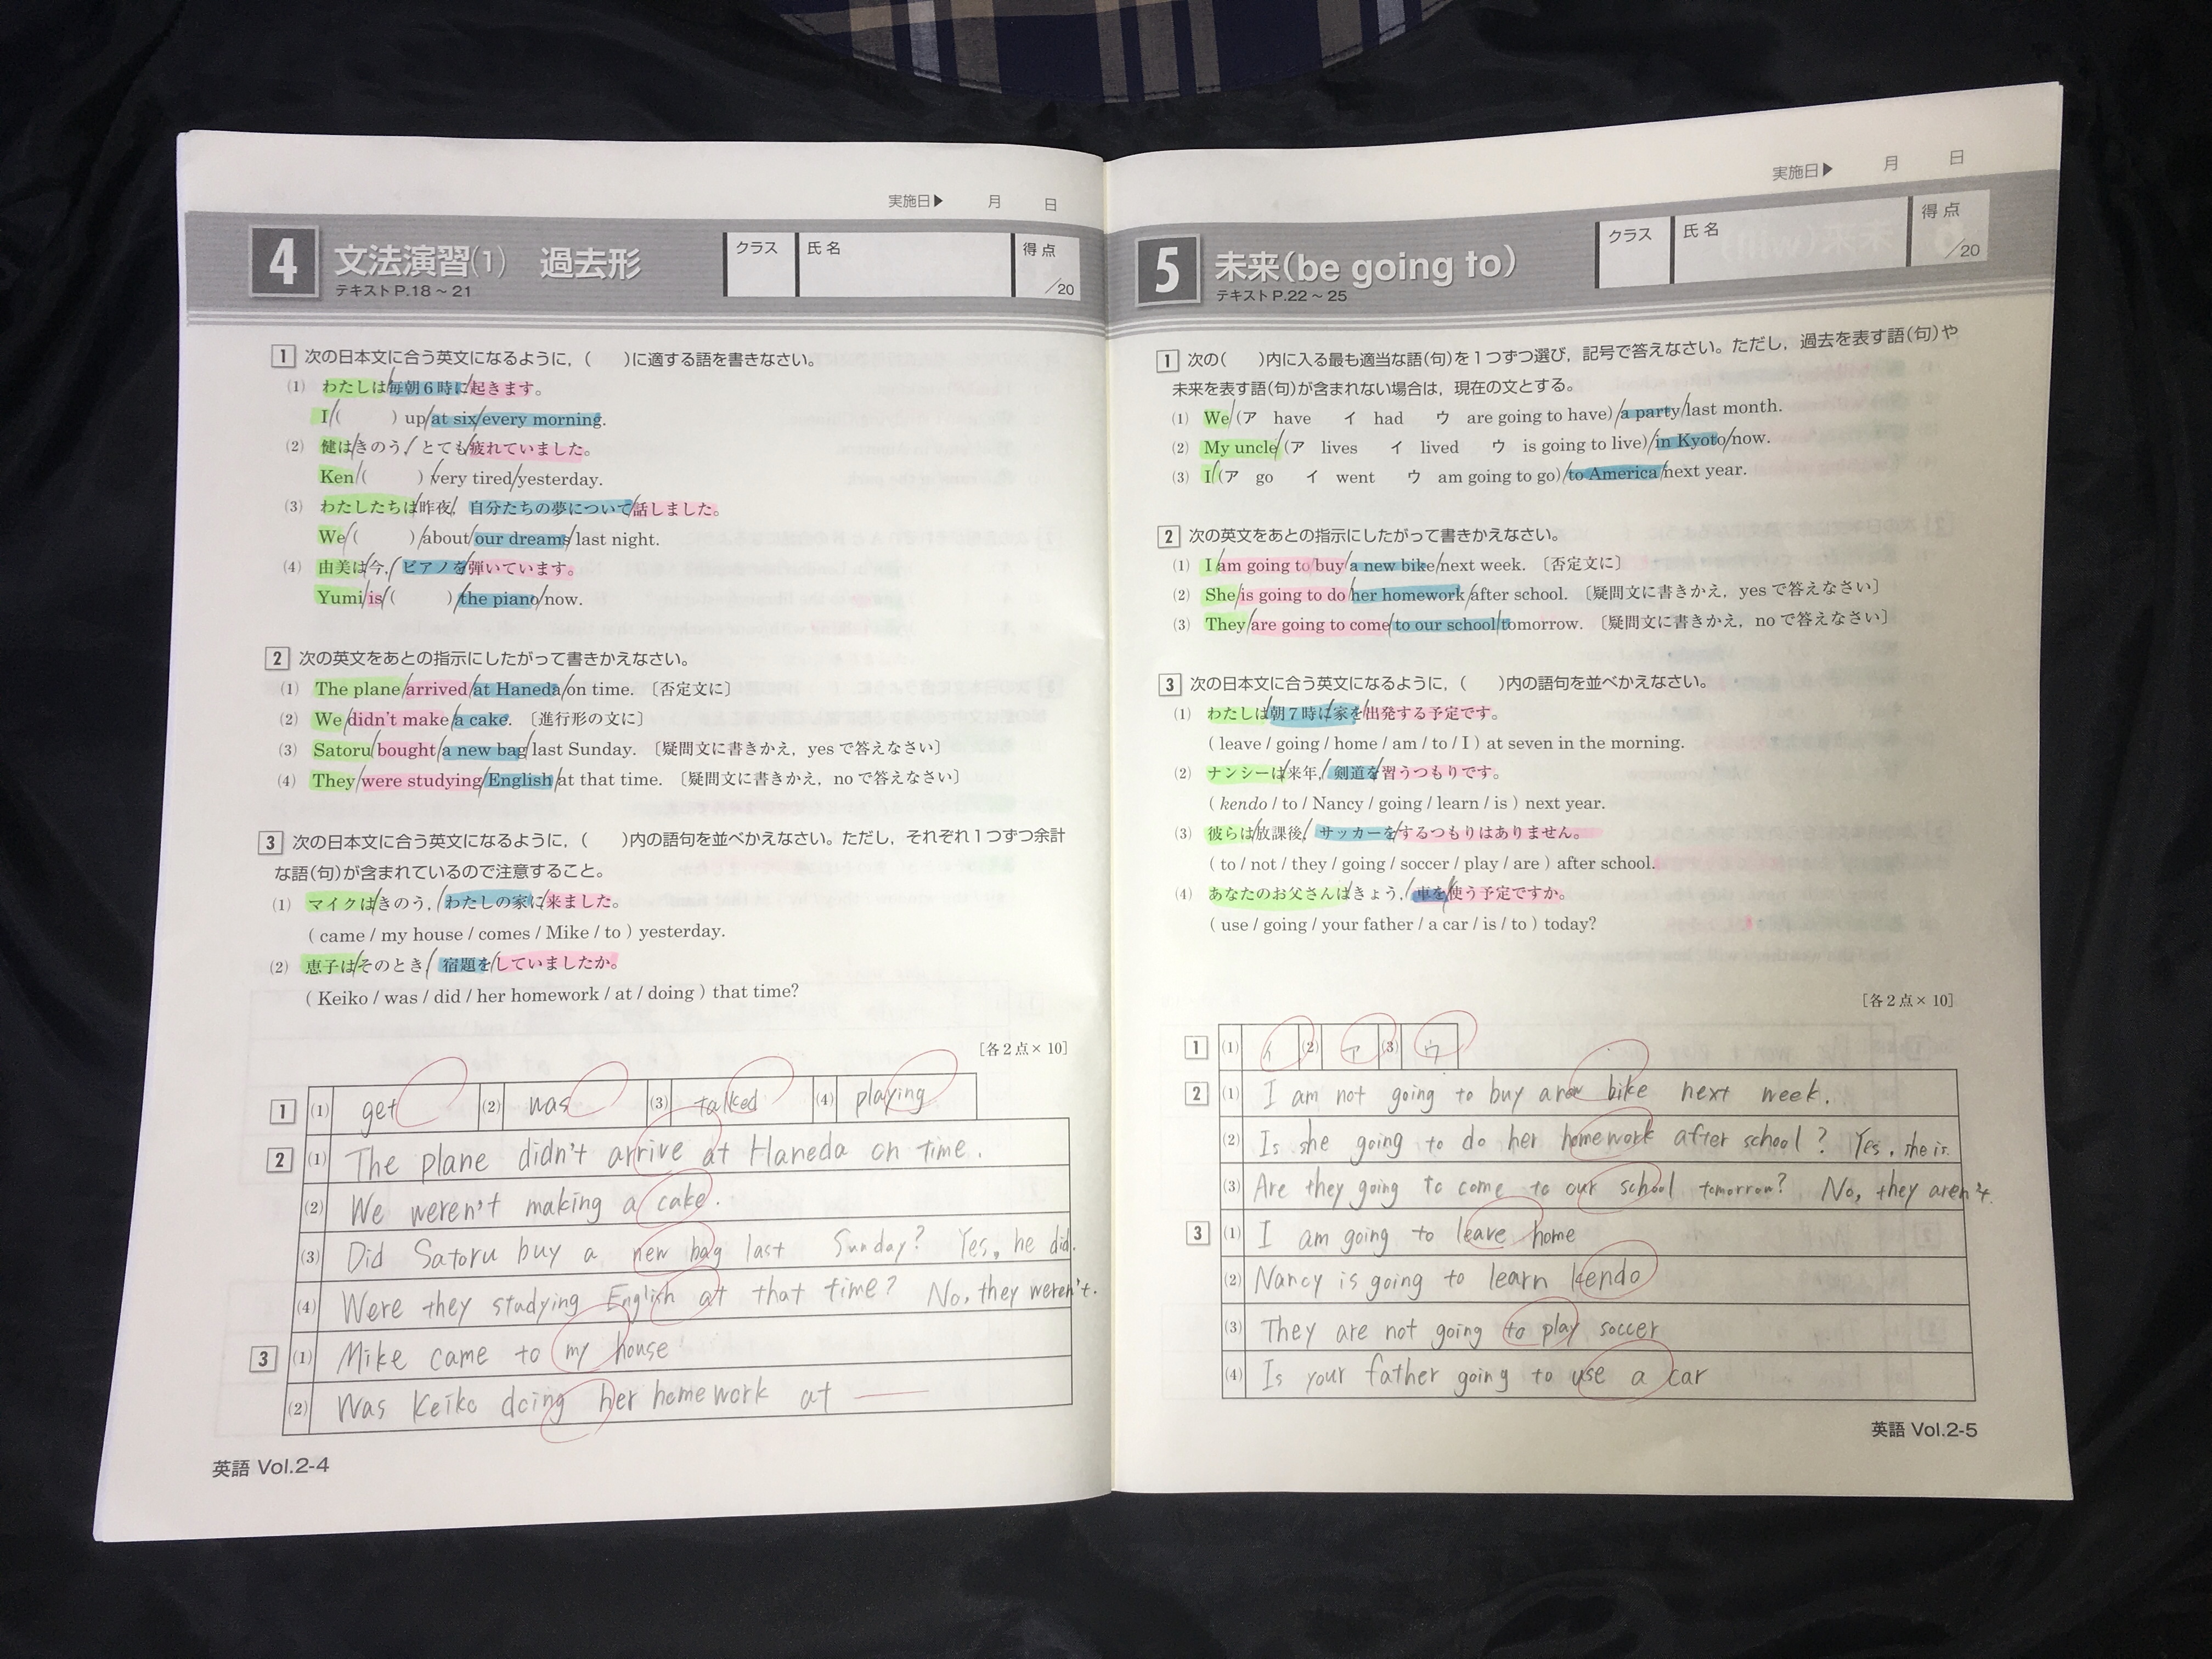 実施日▶ 月 日
4 文法演習(1) 過去形
テキストP.18～21
クラス 氏名 得点 /20
1 次の日本文に合う英文になるように，( )に適する語を書きなさい。
(1) わたしは/毎朝6時に/起きます。
I/( ) up/at six/every morning.
(2) 健は/きのう，/とても/疲れていました。
Ken/( )/very tired/yesterday.
(3) わたしたちは/昨夜，/自分たちの夢について/話しました。
We/( )/about/our dreams/last night.
(4) 由美は/今，/ピアノを/弾いています。
Yumi/is/( )/the piano/now.
2 次の英文をあとの指示にしたがって書きかえなさい。
(1) The plane/arrived/at Haneda/on time. 〔否定文に〕
(2) We/didn't make/a cake. 〔進行形の文に〕
(3) Satoru/bought/a new bag/last Sunday. 〔疑問文に書きかえ，yesで答えなさい〕
(4) They/were studying/English/at that time. 〔疑問文に書きかえ，noで答えなさい〕
3 次の日本文に合う英文になるように，( )内の語句を並べかえなさい。ただし，それぞれ1つずつ余計
な語(句)が含まれているので注意すること。
(1) マイクは/きのう，/わたしの家に/来ました。
( came / my house / comes / Mike / to ) yesterday.
(2) 恵子は/そのとき/宿題を/していましたか。
( Keiko / was / did / her homework / at / doing ) that time?
[各2点×10]
1 (1) get (2) was (3) talked (4) playing
2 (1) The plane didn't arrive at Haneda on time.
(2) We weren't making a cake.
(3) Did Satoru buy a new bag last Sunday? Yes, he did.
(4) Were they studying English at that time? No, they weren't.
3 (1) Mike came to my house
(2) Was Keiko doing her homework at
英語 Vol.2-4
実施日▶ 月 日
5 未来(be going to)
テキストP.22～25
クラス 氏名 得点 /20
1 次の( )内に入る最も適当な語(句)を1つずつ選び，記号で答えなさい。ただし，過去を表す語(句)や
未来を表す語(句)が含まれない場合は，現在の文とする。
(1) We/(ア have イ had ウ are going to have)/a party/last month.
(2) My uncle/(ア lives イ lived ウ is going to live)/in Kyoto/now.
(3) I/(ア go イ went ウ am going to go)/to America/next year.
2 次の英文をあとの指示にしたがって書きかえなさい。
(1) I/am going to/buy/a new bike/next week. 〔否定文に〕
(2) She/is going to do/her homework/after school. 〔疑問文に書きかえ，yesで答えなさい〕
(3) They/are going to come/to our school/tomorrow. 〔疑問文に書きかえ，noで答えなさい〕
3 次の日本文に合う英文になるように，( )内の語句を並べかえなさい。
(1) わたしは/朝7時に/家を/出発する予定です。
( leave / going / home / am / to / I ) at seven in the morning.
(2) ナンシーは/来年，/剣道を/習うつもりです。
( kendo / to / Nancy / going / learn / is ) next year.
(3) 彼らは/放課後，/サッカーを/するつもりはありません。
( to / not / they / going / soccer / play / are ) after school.
(4) あなたのお父さんは/きょう，/車を/使う予定ですか。
( use / going / your father / a car / is / to ) today?
[各2点×10]
1 (1) イ (2) ア (3) ウ
2 (1) I am not going to buy a new bike next week.
(2) Is she going to do her homework after school? Yes, she is.
(3) Are they going to come to our school tomorrow? No, they aren't.
3 (1) I am going to leave home
(2) Nancy is going to learn kendo
(3) They are not going to play soccer
(4) Is your father going to use a car
英語 Vol.2-5